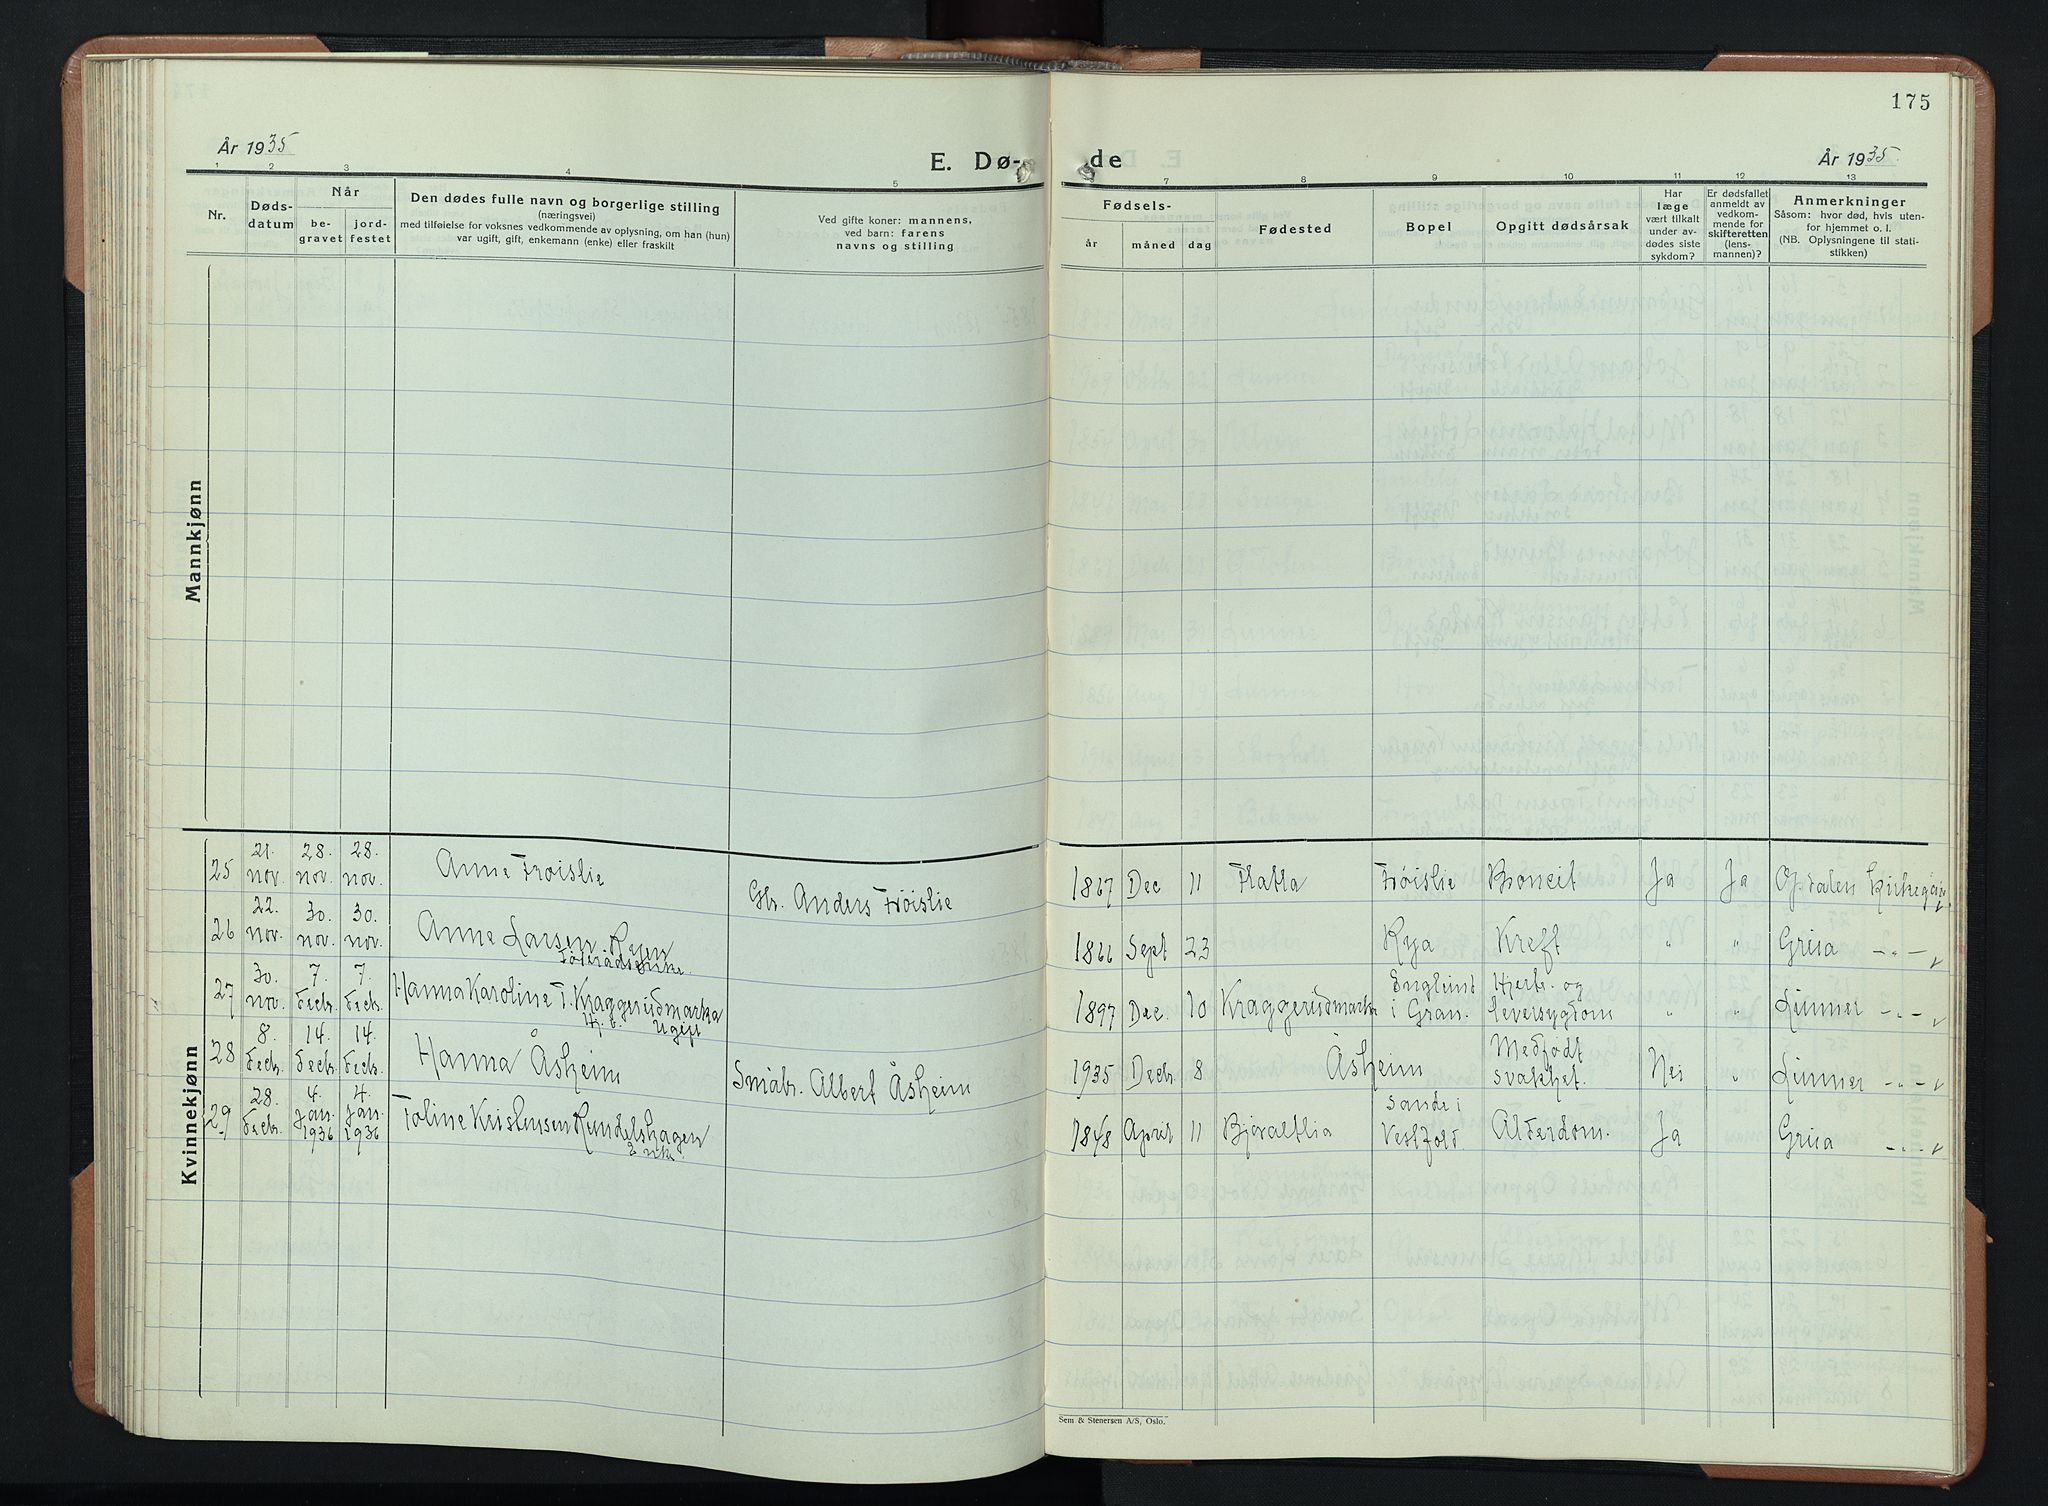 175
År 1935
E. Dø-
de
År 1935.
1 2 3 4 5
7 8 9 10 11 12 13
Nr.
Døds-
datum
Når
be-
gravet
jord-
festet
Den dødes fulle navn og borgerlige stilling
(næringsvei)
med tilføielse for voksnes vedkommende av oplysning, om han (hun)
var ugift, gift, enkemann (enke) eller fraskilt
Ved gifte koner: mannens,
ved barn: farens
navns og stilling
Fødsels-
år måned dag
Fødested
Bopel
Opgitt dødsårsak
Har
læge
vært tilkalt
under av-
dødes siste
sykdom?
Er dødsfallet
anmeldt av
vedkom-
mende for
skifteretten
(lens-
mannen)?
Anmerkninger
Såsom: hvor død, hvis uten-
for hjemmet o. l.
(NB. Oplysningene til stati-
stikken)
Mannkjønn
Kvinnekjønn
25 21. nov. 28. nov. 28. nov. Anne Frøislie Gbr. Anders Frøislie 1867 Dec 11 Flatla Frøislie Broncit Ja Ja Opdalen Kirkegård
26 22. nov. 30. nov. 30. nov. Anne Larsen Ryen
Føderådsenke. 1866 Sept 23 Rya Kreft " " Grua -"-
27 30. nov. 7. Decbr. 7. Decbr. Hanna Karoline T. Kraggerudmarka
Hj. b. Ugift 1897 Dec. 10 Kraggerudmarka Englund i Gran. Hjerte- og leversygdom " " Lunner -"-
28 8. Decbr. 14. Decbr. 14. Decbr. Hanna Åsheim Småbr. Albert Åsheim 1935 Decbr. 8 Åsheim Medfødt svakhet. Nei " Lunner -"-
29 28. Decbr. 4. Jan. 1936 4. Jan. 1936 Toline Kristensen Rundelshagen
Enke. 1848 April 11 Bjøraltlia Sande i Vestfold. Alderdom. Ja Grua -"-
Sem & Stenersen A/S, Oslo.